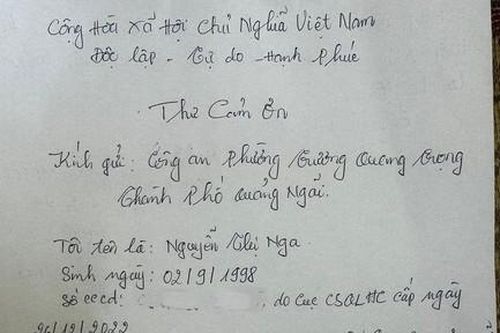 Cộng Hoà Xã Hội Chủ Nghĩa Việt Nam
Độc lập - Tự do - Hạnh Phúc
Thư Cảm Ơn
Kính gửi: Công an Phường Trương Quang Trọng
Thành Phố Quảng Ngãi.
Tôi tên là: Nguyễn Thị Nga
Sinh ngày: 02/9/1998
Số cccd: , do Cục CSQLHC cấp ngày
/12/2022